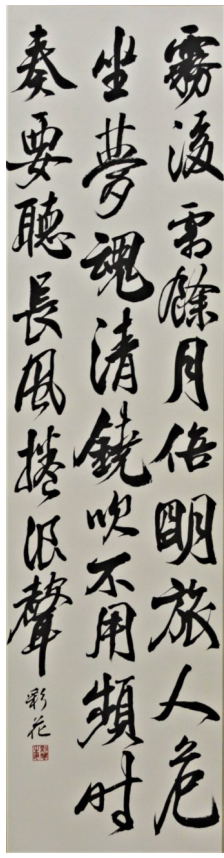 霧後餘月倍明旅人危
坐夢魂清鐃吹不用頻時
奏要聽長風捲浪聲
彩花